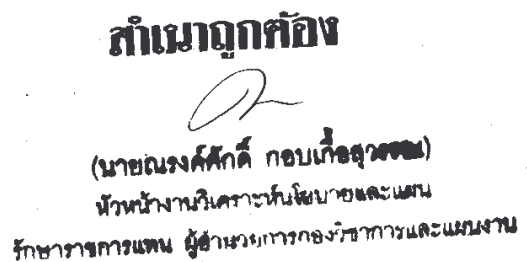 สำเนาถูกต้อง
(นายณรงค์ศักดิ์
หัวหน้างานวิเคราะห์นโยบายและแผน
รักษาราชการแทน ผู้อำนวยการกองวิชาการและแผนงาน